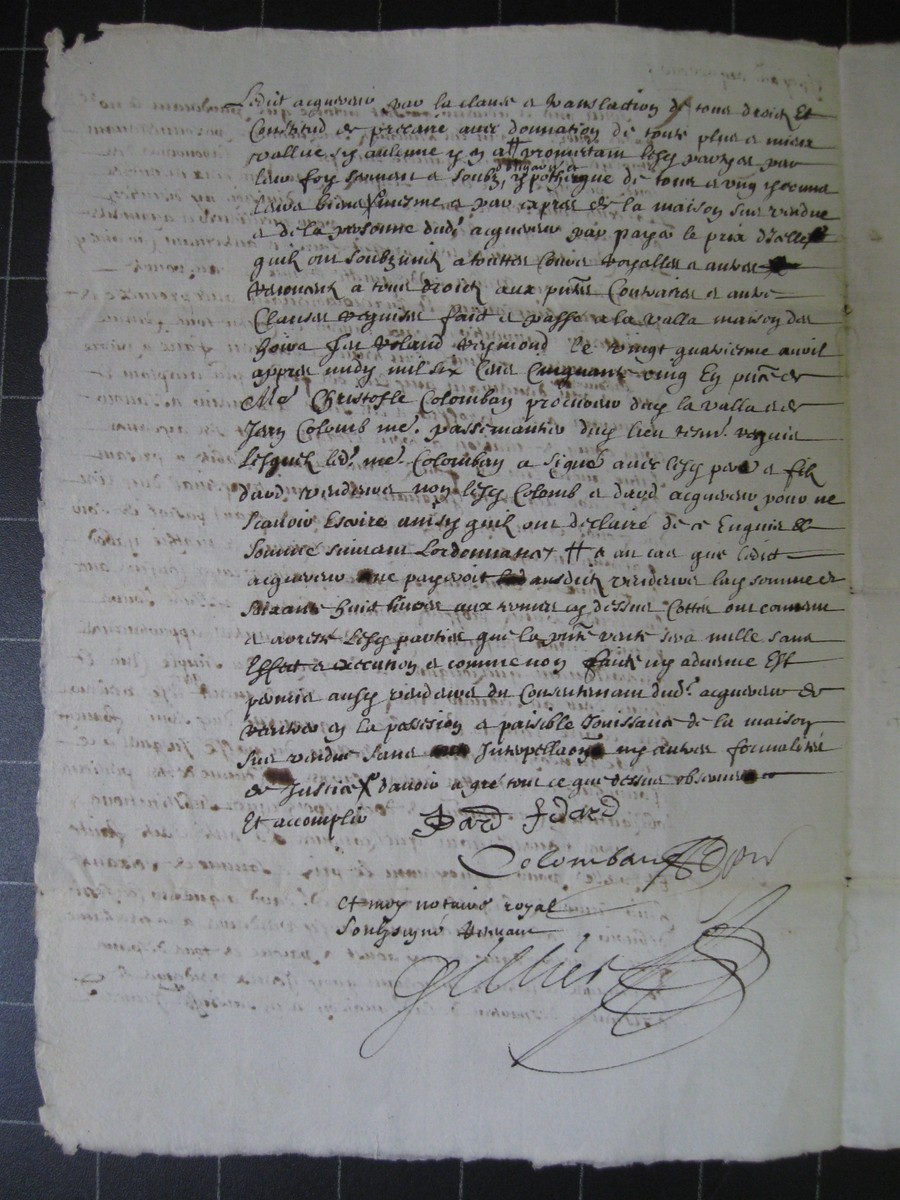 Ledict acquereur par la clause a translation de tous droicts Et
Constitud de precaire avec donnation de toute plus a mieux
vallue sy aulcune y en a # promettant lesd parties par
leur foy serment a soubz obligation et ypotheque de tous a
leurs biens mesme a par expres de la maison sus vendue
a de la personne dud. acquereur par payer le prix d'icelle
quils ont soubzmis a touttes Cours royalles a autres
renonceant a tous droicts aux pntes Contraires a autres
Clauses requises fait a passé a la valla maison des
hoirs feu Roland Reymond le vingt quatriesme avril
appres midy mil six Cens Cinquante cinq En pnce de
Me Christofle Colomban procureur dud la valla a de
Jean Colomb me. passemantier dud lieu tesm. requis
Lesquels led. me. Colomban a signé avec lesd pere a fils
dard vendeurs non lesd Colomb a david acquereur pour ne
scavoir Escrire ainsy quils ont declairé de ce Enquis &
sommé suivant Lordonnance # a au cas que ledict
acquereur ne payeroit ausdicts vendeurs lad somme de
soixante huict livres aux termes cy dessus Cottés ont convenu
a arresté lesd parties que la pnte vente sera nulle sans
Effect a execution a comme non faicte ny advenue Est
permis ausd vendeurs du Consentement dud. acquereur de
rentrer en la possession a paisible Jouissance de la maison
sus vendue sans Interpellaon ny autres formalités
de Justice davoir a gré tout ce que dessus observer
Et accomplir Dard Jdard
Colomban
Et moy notaire royal
soubsigné recevant
Gillier